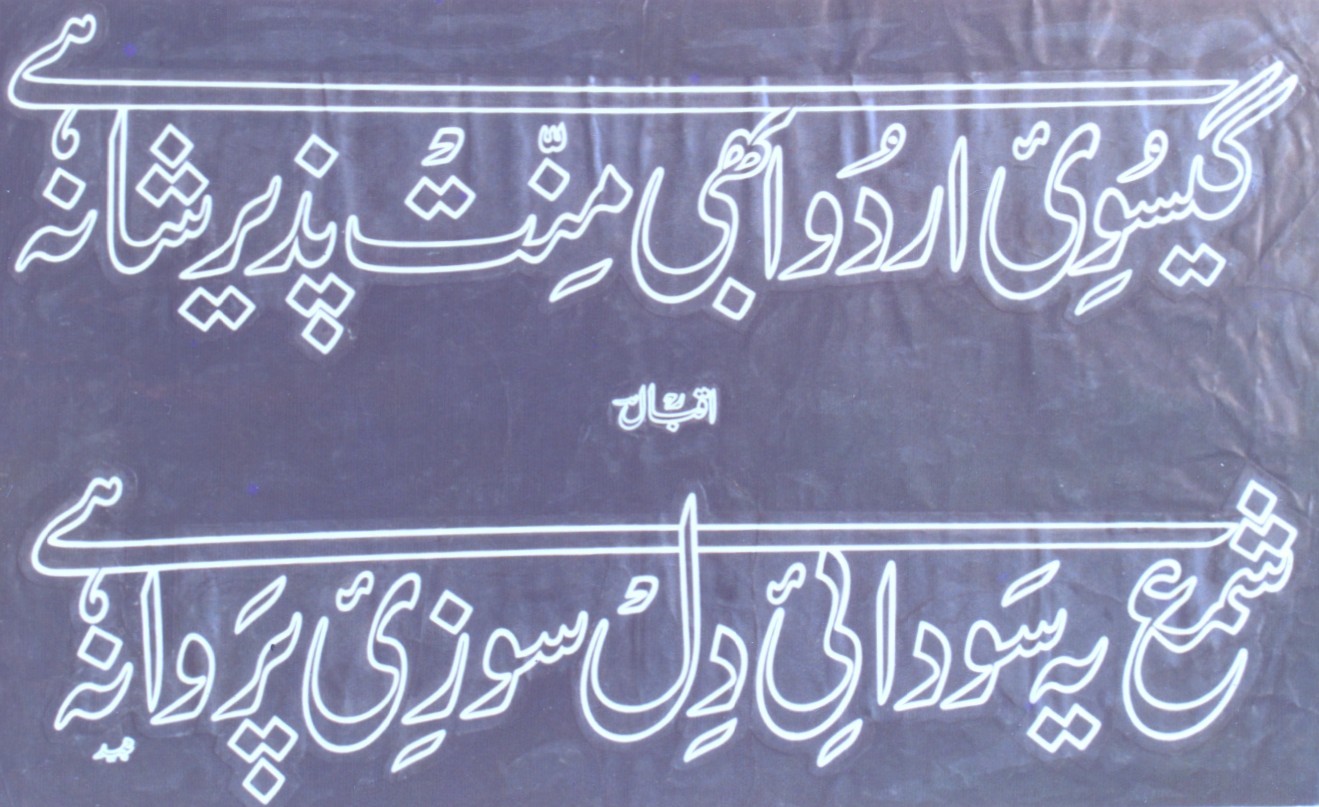 گیسوئ اردو ابھی منّت پذیرِ شانہ ہے
اقبالؒ
شمع یہ سودائیِ دل سوزئ پروانہ ہے